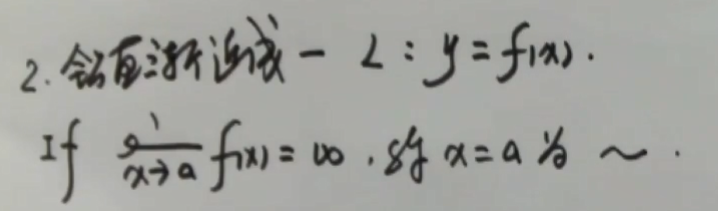 2. 铅直渐近线 — L: y = f(x).
If lim x→a f(x) = ∞, 则 x = a 为 ~.